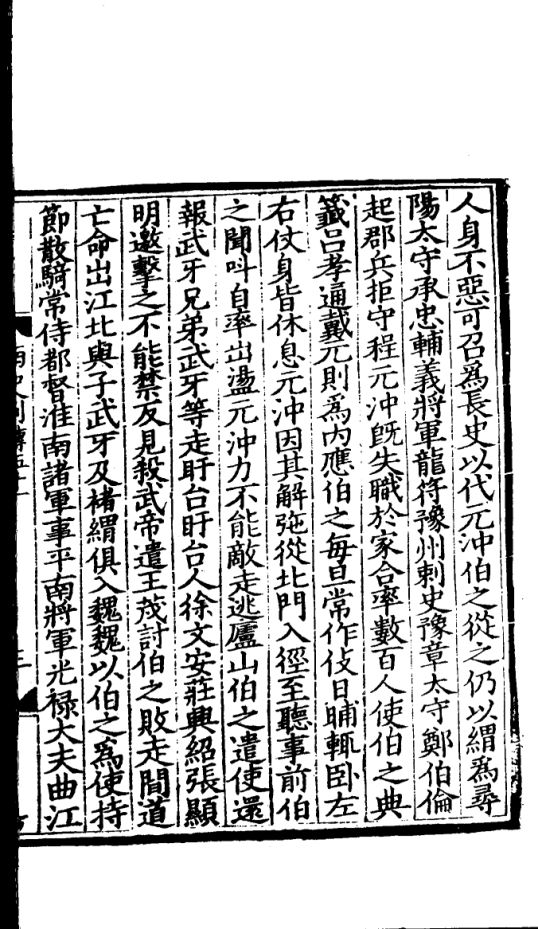 人身不惡可召為長史以代元沖伯之從之仍以縎為尋
陽太守承忠輔義將軍龍符豫州刺史豫章太守鄭伯倫
起郡兵拒守程元沖旣失職於家合率數百人使伯之典
籖呂孝通戴元則為内應伯之毎旦常作伎日晡輒卧左
右仗身皆休息元沖因其解弛從北門入徑至聽事前伯
之聞呌自率出盪元沖力不能敵走逃廬山伯之遣使還
報武牙兄弟武牙等走盱台盱台人徐文安莊興紹張顯
明邀擊之不能禁反見殺武帝遣王茂討伯之敗走間道
亡命出江北與子武牙及褚縎俱入魏魏以伯之為使持
節散騎常侍都督淮南諸軍事平南將軍光禄大夫曲江
南史列傳五十一